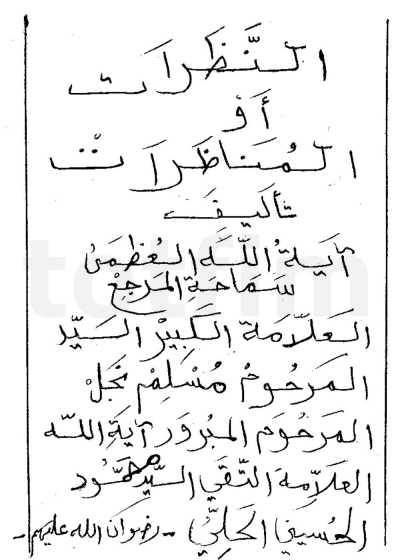 النَّظَرَات
أَوْ
المُنَاظَرَات
تأليف
آيَةُ اللَّهِ العُظمَىٰ
سَمَاحَةِ المَرجِعْ
العَلاَّمَة الكَبِيْر السَيِّد
المَرحُومْ مُسْلِمْ نَجَلْ
المَرحُوم المبُروَر آيَةِ اللّه
العَلاَّمِة التَّقي السيِّد حمُّود
الحُسيني الحِلِّيُّ - رضوان الله عليهم -
totfim